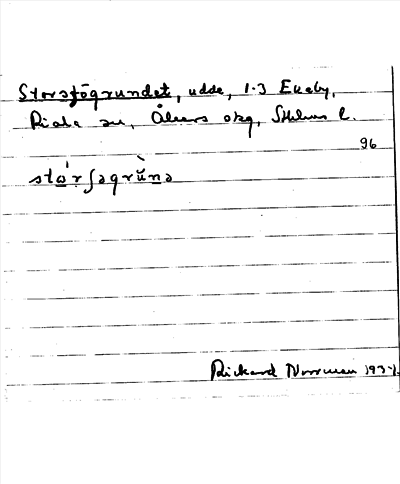 Storsjögrundet, udde, 1.3 Ekeby,
Riala sn, Åkers skg, Sthlms l.
96
stɷ́rʃəgrǜnə
Rickard Norrman 1937.